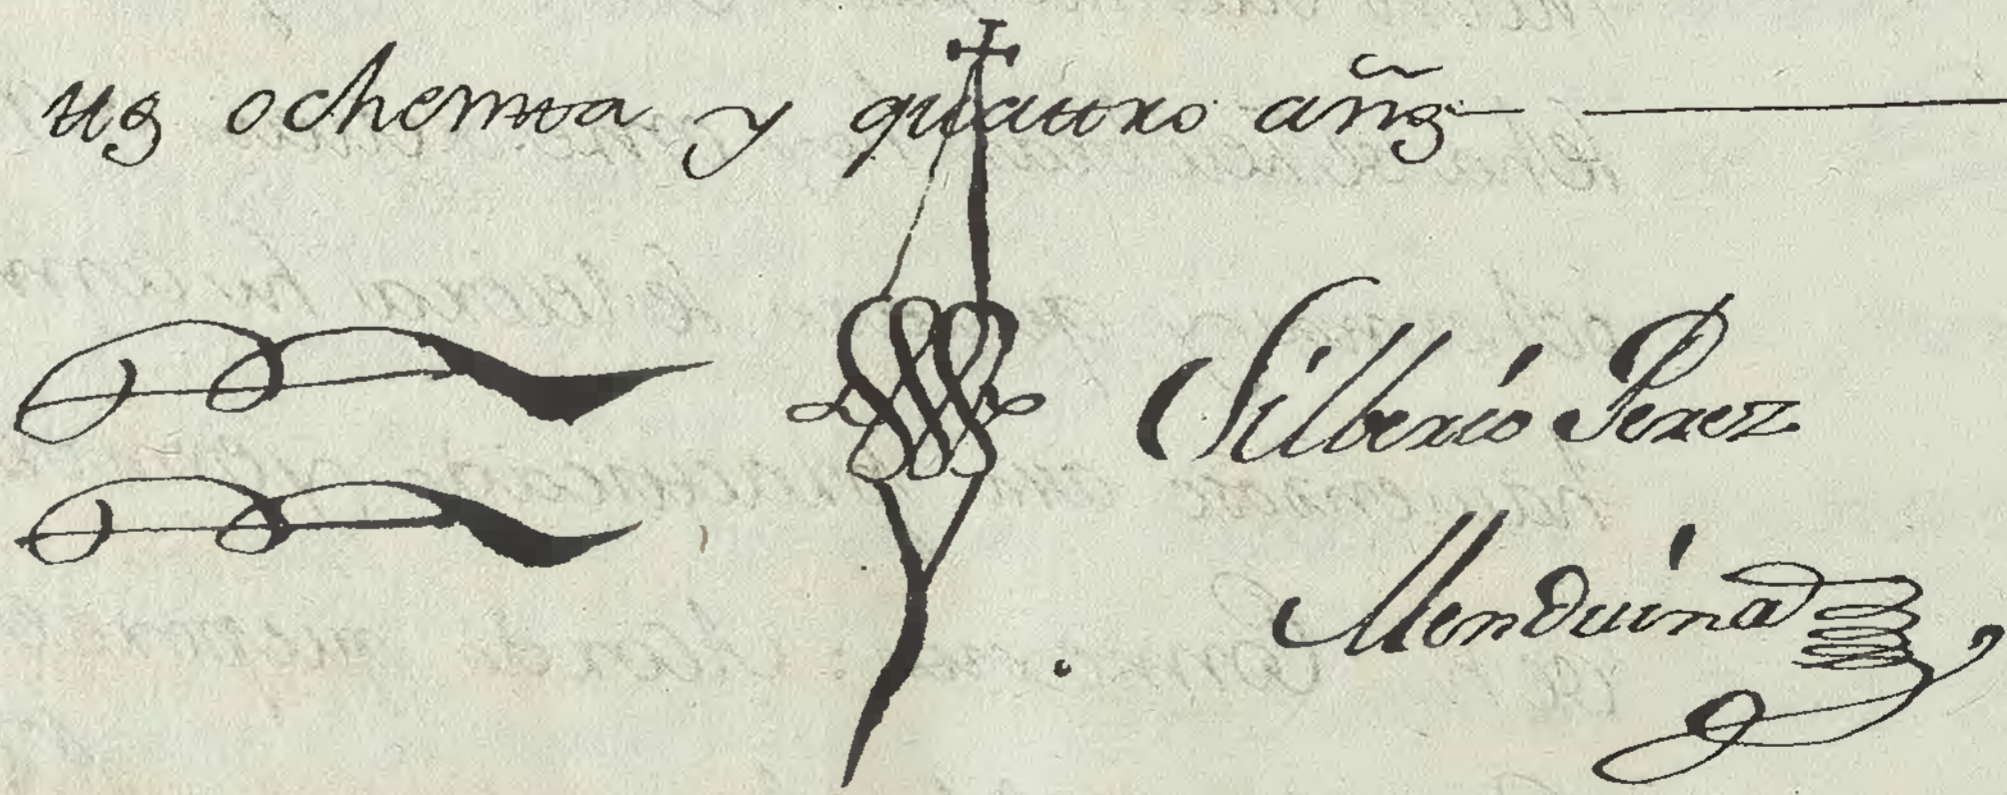 tts ochenta y quattro añs
Silberio Perez
Menduina